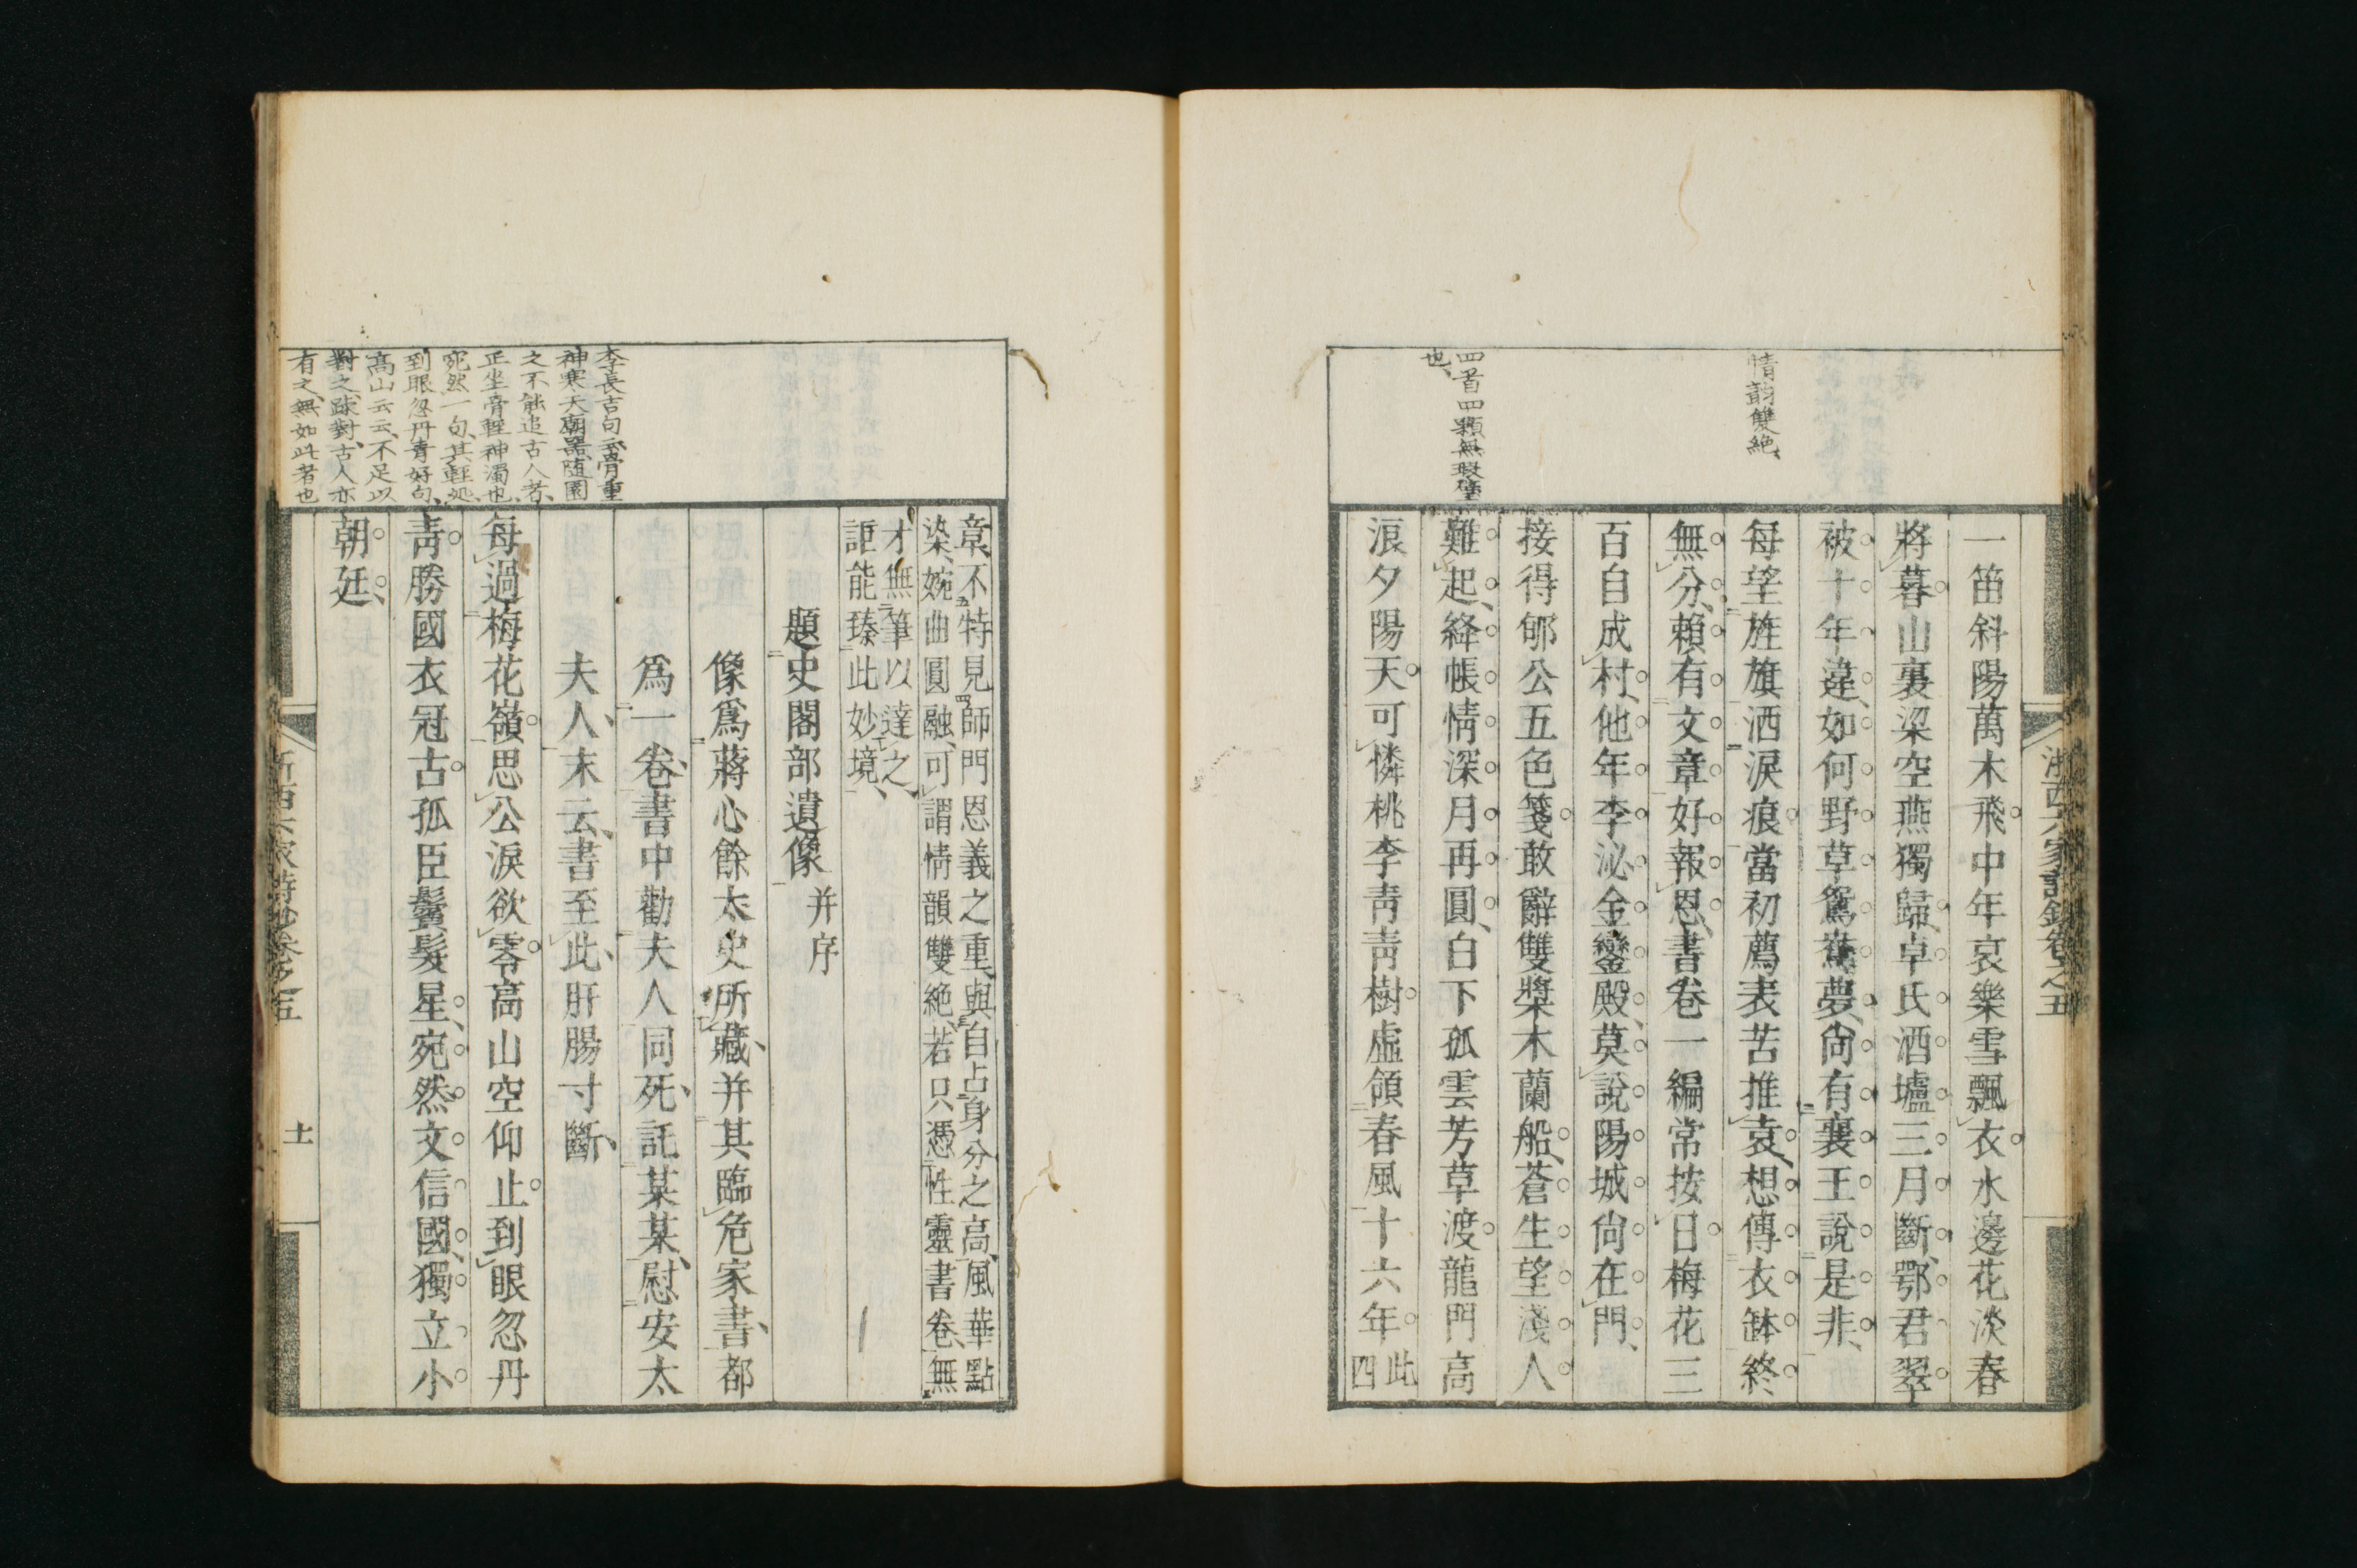 情韵雙絶
四首四顆無瑕璧
也
一笛斜陽萬木飛中年哀樂雪飄衣水邊花淡春
將暮山裏梁空燕獨歸卓氏酒壚三月斷鄂君翠
被十年違如何野草鴛鴦夢尙有襄王說是非
每望旌旗洒淚痕當初薦表苦推袁想傳衣鉢終
無分賴有文章好報恩書卷一編常按日梅花三
百自成村他年李泌金鑾殿莫說陽城尙在門
接得郇公五色箋敢辭雙槳木蘭船蒼生望淺人
難起絳帳情深月再圓白下孤雲芳草渡龍門高
浪夕陽天可憐桃李靑靑樹虛領春風十六年此
四
浙西六家詩鈔卷之五
李長吉句云骨重
神寒天廟器随園
之不能追古人者
正坐骨輕神濁也
宛然一句其輕処
到眼忽丹青好句
高山云云不足以
對之踈對古人亦
有之無如此者也
章不特見師門恩義之重與自占身分之高風華點
染婉曲圓融可謂情韻雙絶若只憑性靈書卷無
才無筆以達之
詎能臻此妙境
題史閣部遺像并序
像爲蔣心餘太史所藏并其臨危家書都
爲一卷書中勸夫人同死託某某慰安太
夫人末云書至此肝腸寸斷
每過梅花嶺思公淚欲零高山空仰止到眼忽丹
靑勝國衣冠古孤臣鬢髮星宛然文信國獨立小
朝廷
浙西六家詩鈔卷之五
十一